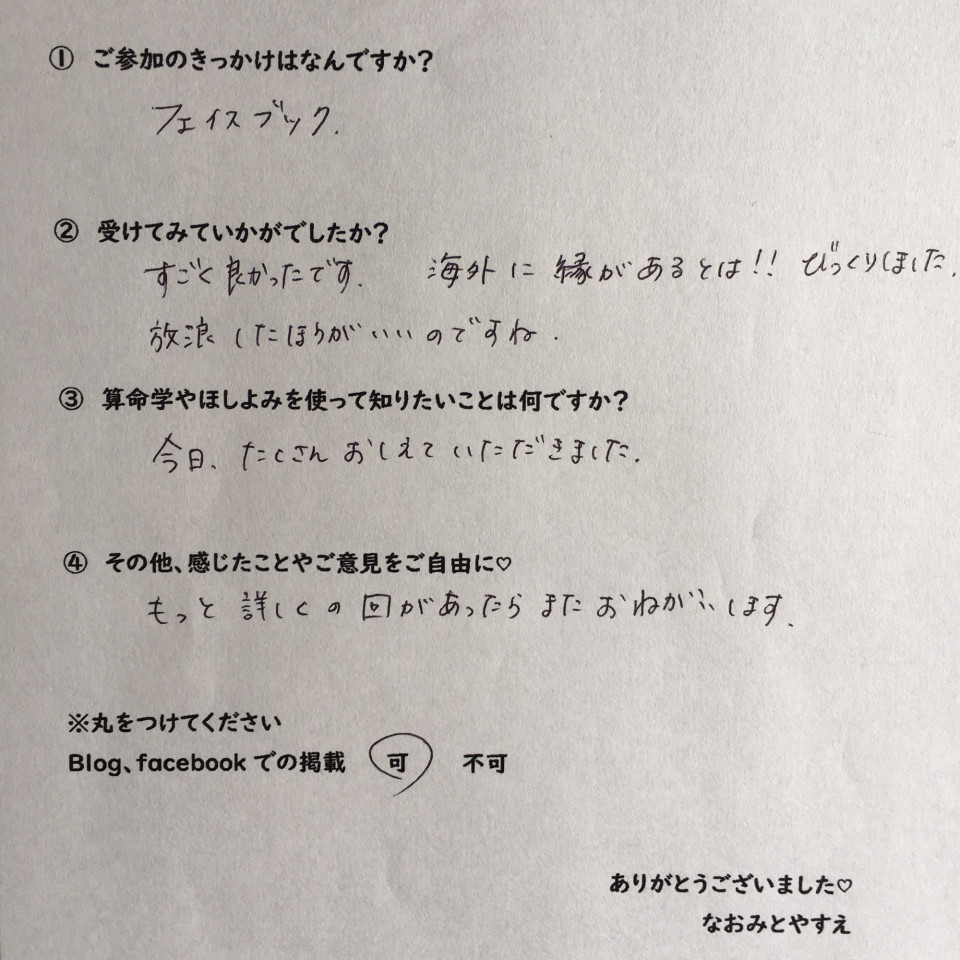 ① ご参加のきっかけはなんですか?
フェイスブック.
② 受けてみていかがでしたか?
すごく良かったです. 海外に縁があるとは!! びっくりしました.
放浪したほうがいいのですね.
③ 算命学やほしよみを使って知りたいことは何ですか?
今日、たくさんおしえていただきました.
④ その他、感じたことやご意見をご自由に♡
もっと詳しくの回があったらまたおねがいします.
※丸をつけてください
Blog、facebookでの掲載 可 不可
ありがとうございました♡
なおみとやすえ